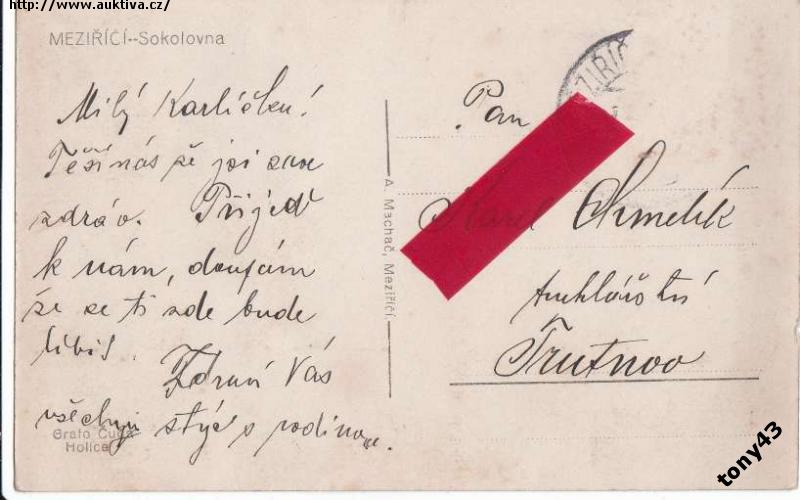 http://www.auktiva.cz/
MEZIŘÍČÍ--Sokolovna
Milý Karlíčku!
Těší nás že jsi zase
zdráv. Přijeď
k nám, doufám
že se ti zde bude
líbit.
Zdraví Vás
všechny strýc s rodinou.
Grafo Čuda
Holice
A. Machač, Meziříčí.
ZIŘÍČ
Pan
Karel Chmelík
Truhlářství
Trutnov
tony43